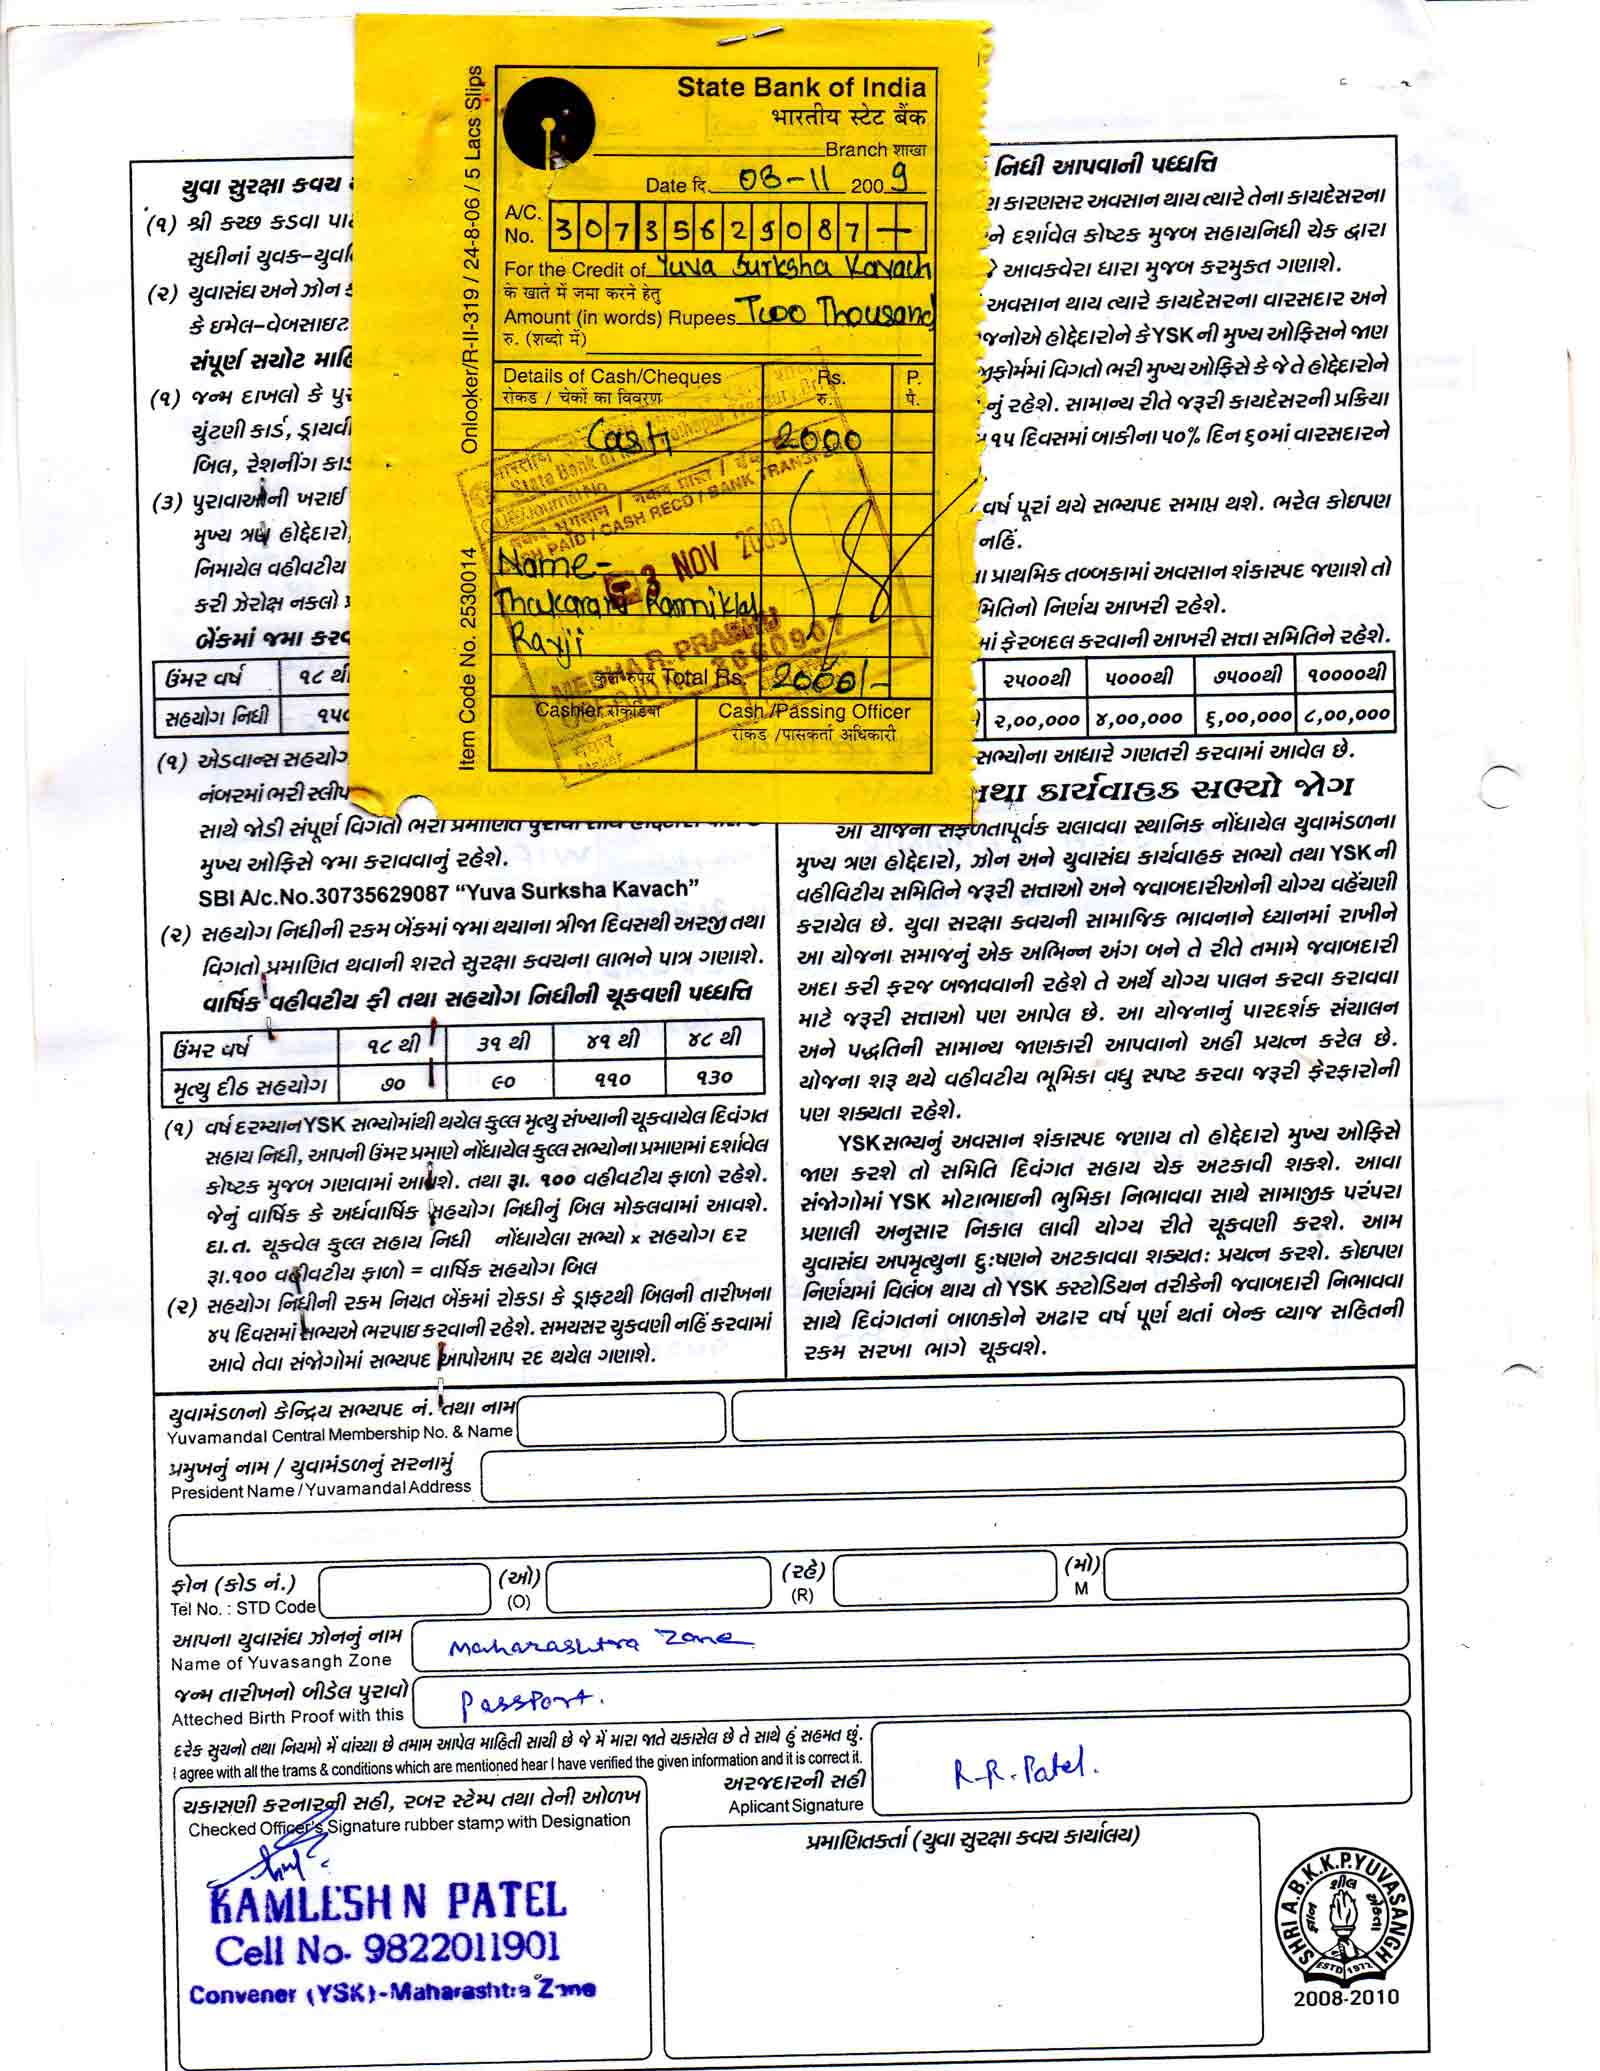 State Bank of India
भारतीय स्टेट बैंक
Branch शाखा
Date दि. 03-11 2009
A/C. No. 30735629087
For the Credit of Yuva Surksha Kavach
के खाते में जमा करने हेतु
Amount (in words) Rupees Two Thousand
रु. (शब्दो में)
Details of Cash/Cheques Rs. P.
रोकड / चेकों का विवरण रु. पै.
Cash 2000
Name-
Thakarani Ramniklal
Ravji
कुल रुपय Total Rs. 2000/-
Cashier रोकडिया Cash /Passing Officer
रोकड /पासकर्ता अधिकारी
Item Code No. 2530014 Onlooker/R-II-319 / 24-8-06 / 5 Lacs Slips
3 NOV 2009
યુવા સુરક્ષા કવચ
(૧) શ્રી કચ્છ કડવા પાટ
સુધીનાં યુવક-યુવતિ
(૨) યુવાસંઘ અને ઝોન ક
કે ઇમેલ-વેબસાઇટ
સંપૂર્ણ સચોટ માહિ
(૧) જન્મ દાખલો કે પુર
ચુંટણી કાર્ડ, ડ્રાયવી
બિલ, રેશનીંગ કાર્ડ
(૩) પુરાવાઓની ખરાઈ
મુખ્ય ત્રણ હોદ્દેદારો,
નિમાયેલ વહીવટીય
કરી ઝેરોક્ષ નકલો પ્ર
બેંકમાં જમા કરવ
ઉંમર વર્ષ ૧૮ થી
સહયોગ નિધી ૧૫૦
(૧) એડવાન્સ સહયોગ
નંબરમાં ભરી સ્લીપ
સાથે જોડી સંપૂર્ણ વિગતો ભરી પ્રમાણિત પુરાવા સાથે
મુખ્ય ઓફિસે જમા કરાવવાનું રહેશે.
SBI A/c.No.30735629087 “Yuva Surksha Kavach”
(૨) સહયોગ નિધીની રકમ બેંકમાં જમા થયાના ત્રીજા દિવસથી અરજી તથા
વિગતો પ્રમાણિત થવાની શરતે સુરક્ષા કવચના લાભને પાત્ર ગણાશે.
વાર્ષિક વહીવટીય ફી તથા સહયોગ નિધીની ચૂકવણી પધ્ધત્તિ
ઉંમર વર્ષ ૧૮ થી ૩૧ થી ૪૧ થી ૪૮ થી
મૃત્યુ દીઠ સહયોગ ૭૦ ૯૦ ૧૧૦ ૧૩૦
(૧) વર્ષ દરમ્યાન YSK સભ્યોમાંથી થયેલ કુલ્લ મૃત્યુ સંખ્યાની ચૂકવાયેલ દિવંગત
સહાય નિધી, આપની ઉંમર પ્રમાણે નોંધાયેલ કુલ્લ સભ્યોના પ્રમાણમાં દર્શાવેલ
કોષ્ટક મુજબ ગણવામાં આવશે. તથા રૂા. ૧૦૦ વહીવટીય ફાળો રહેશે.
જેનું વાર્ષિક કે અર્ધવાર્ષિક સહયોગ નિધીનું બિલ મોકલવામાં આવશે.
દા.ત. ચૂકવેલ કુલ્લ સહાય નિધી નોંધાયેલા સભ્યો x સહયોગ દર
રૂા.૧૦૦ વહીવટીય ફાળો = વાર્ષિક સહયોગ બિલ
(૨) સહયોગ નિધીની રકમ નિયત બેંકમાં રોકડા કે ડ્રાફ્ટથી બિલની તારીખના
૪૫ દિવસમાં સભ્યએ ભરપાઇ કરવાની રહેશે. સમયસર ચુકવણી નહિં કરવામાં
આવે તેવા સંજોગોમાં સભ્યપદ આપોઆપ રદ થયેલ ગણાશે.
નિધી આપવાની પધ્ધત્તિ
કારણસર અવસાન થાય ત્યારે તેના કાયદેસરના
ને દર્શાવેલ કોષ્ટક મુજબ સહાયનિધી ચેક દ્વારા
આવકવેરા ધારા મુજબ કરમુક્ત ગણાશે.
અવસાન થાય ત્યારે કાયદેસરના વારસદાર અને
જનોએ હોદ્દેદારોને કે YSK ની મુખ્ય ઓફિસને જાણ
ફોર્મમાં વિગતો ભરી મુખ્ય ઓફિસે કે જે તે હોદ્દેદારોને
નું રહેશે. સામાન્ય રીતે જરૂરી કાયદેસરની પ્રક્રિયા
૧૫ દિવસમાં બાકીના ૫૦% દિન ૬૦માં વારસદારને
વર્ષ પૂરાં થયે સભ્યપદ સમાપ્ત થશે. ભરેલ કોઇપણ
નહિં.
પ્રાથમિક તબ્બકામાં અવસાન શંકાસ્પદ જણાશે તો
મિતિનો નિર્ણય આખરી રહેશે.
માં ફેરબદલ કરવાની આખરી સત્તા સમિતિને રહેશે.
૨૫૦૦થી ૫૦૦૦થી ૭૫૦૦થી ૧૦૦૦૦થી
૨,૦૦,૦૦૦ ૪,૦૦,૦૦૦ ૬,૦૦,૦૦૦ ૮,૦૦,૦૦૦
સભ્યોના આધારે ગણતરી કરવામાં આવેલ છે.
તથા કાર્યવાહક સભ્યો જોગ
આ યોજના સફળતાપૂર્વક ચલાવવા સ્થાનિક નોંધાયેલ યુવામંડળના
મુખ્ય ત્રણ હોદ્દેદારો, ઝોન અને યુવાસંઘ કાર્યવાહક સભ્યો તથા YSK ની
વહીવિટીય સમિતિને જરૂરી સત્તાઓ અને જવાબદારીઓની યોગ્ય વહેંચણી
કરાયેલ છે. યુવા સરક્ષા કવચની સામાજિક ભાવનાને ધ્યાનમાં રાખીને
આ યોજના સમાજનું એક અભિન્ન અંગ બને તે રીતે તમામે જવાબદારી
અદા કરી ફરજ બજાવવાની રહેશે તે અર્થે યોગ્ય પાલન કરવા કરાવવા
માટે જરૂરી સત્તાઓ પણ આપેલ છે. આ યોજનાનું પારદર્શક સંચાલન
અને પદ્ધતિની સામાન્ય જાણકારી આપવાનો અહીં પ્રયત્ન કરેલ છે.
યોજના શરૂ થયે વહીવટીય ભૂમિકા વધુ સ્પષ્ટ કરવા જરૂરી ફેરફારોની
પણ શક્યતા રહેશે.
YSK સભ્યનું અવસાન શંકાસ્પદ જણાય તો હોદ્દેદારો મુખ્ય ઓફિસે
જાણ કરશે તો સમિતિ દિવંગત સહાય ચેક અટકાવી શકશે. આવા
સંજોગોમાં YSK મોટાભાઇની ભુમિકા નિભાવવા સાથે સામાજીક પરંપરા
પ્રણાલી અનુસાર નિકાલ લાવી યોગ્ય રીતે ચૂકવણી કરશે. આમ
યુવાસંઘ અપમૃત્યુના દુઃષણને અટકાવવા શક્યતઃ પ્રયત્ન કરશે. કોઇપણ
નિર્ણયમાં વિલંબ થાય તો YSK કસ્ટોડિયન તરીકેની જવાબદારી નિભાવવા
સાથે દિવંગતનાં બાળકોને અઢાર વર્ષ પૂર્ણ થતાં બેન્ક વ્યાજ સહિતની
રકમ સરખા ભાગે ચૂકવશે.
યુવામંડળનો કેન્દ્રિય સભ્યપદ નં. તથા નામ
Yuvamandal Central Membership No. & Name
પ્રમુખનું નામ / યુવામંડળનું સરનામું
President Name / Yuvamandal Address
ફોન (કોડ નં.) (ઓ) (રહે) (મો)
Tel No. : STD Code (O) (R) M
આપના યુવાસંઘ ઝોનનું નામ
Name of Yuvasangh Zone Maharashtra Zone
જન્મ તારીખનો બીડેલ પુરાવો
Atteched Birth Proof with this Passport.
દરેક સુચનો તથા નિયમો મેં વાંચ્યા છે તમામ આપેલ માહિતી સાચી છે જે મેં મારા જાતે ચકાસેલ છે તે સાથે હું સહમત છું.
I agree with all the trams & conditions which are mentioned hear I have verified the given information and it is correct it.
અરજદારની સહી
Aplicant Signature R.R.Patel.
ચકાસણી કરનારની સહી, રબર સ્ટેમ્પ તથા તેની ઓળખ
Checked Officer's Signature rubber stamp with Designation
KAMLESH N PATEL
Cell No. 9822011901
Convener (YSK)-Maharashtra Zone
પ્રમાણિતકર્તા (યુવા સુરક્ષા કવચ કાર્યાલય)
SHRI A.B.K.K.P.YUVASANGH
ESTD 1972
2008-2010